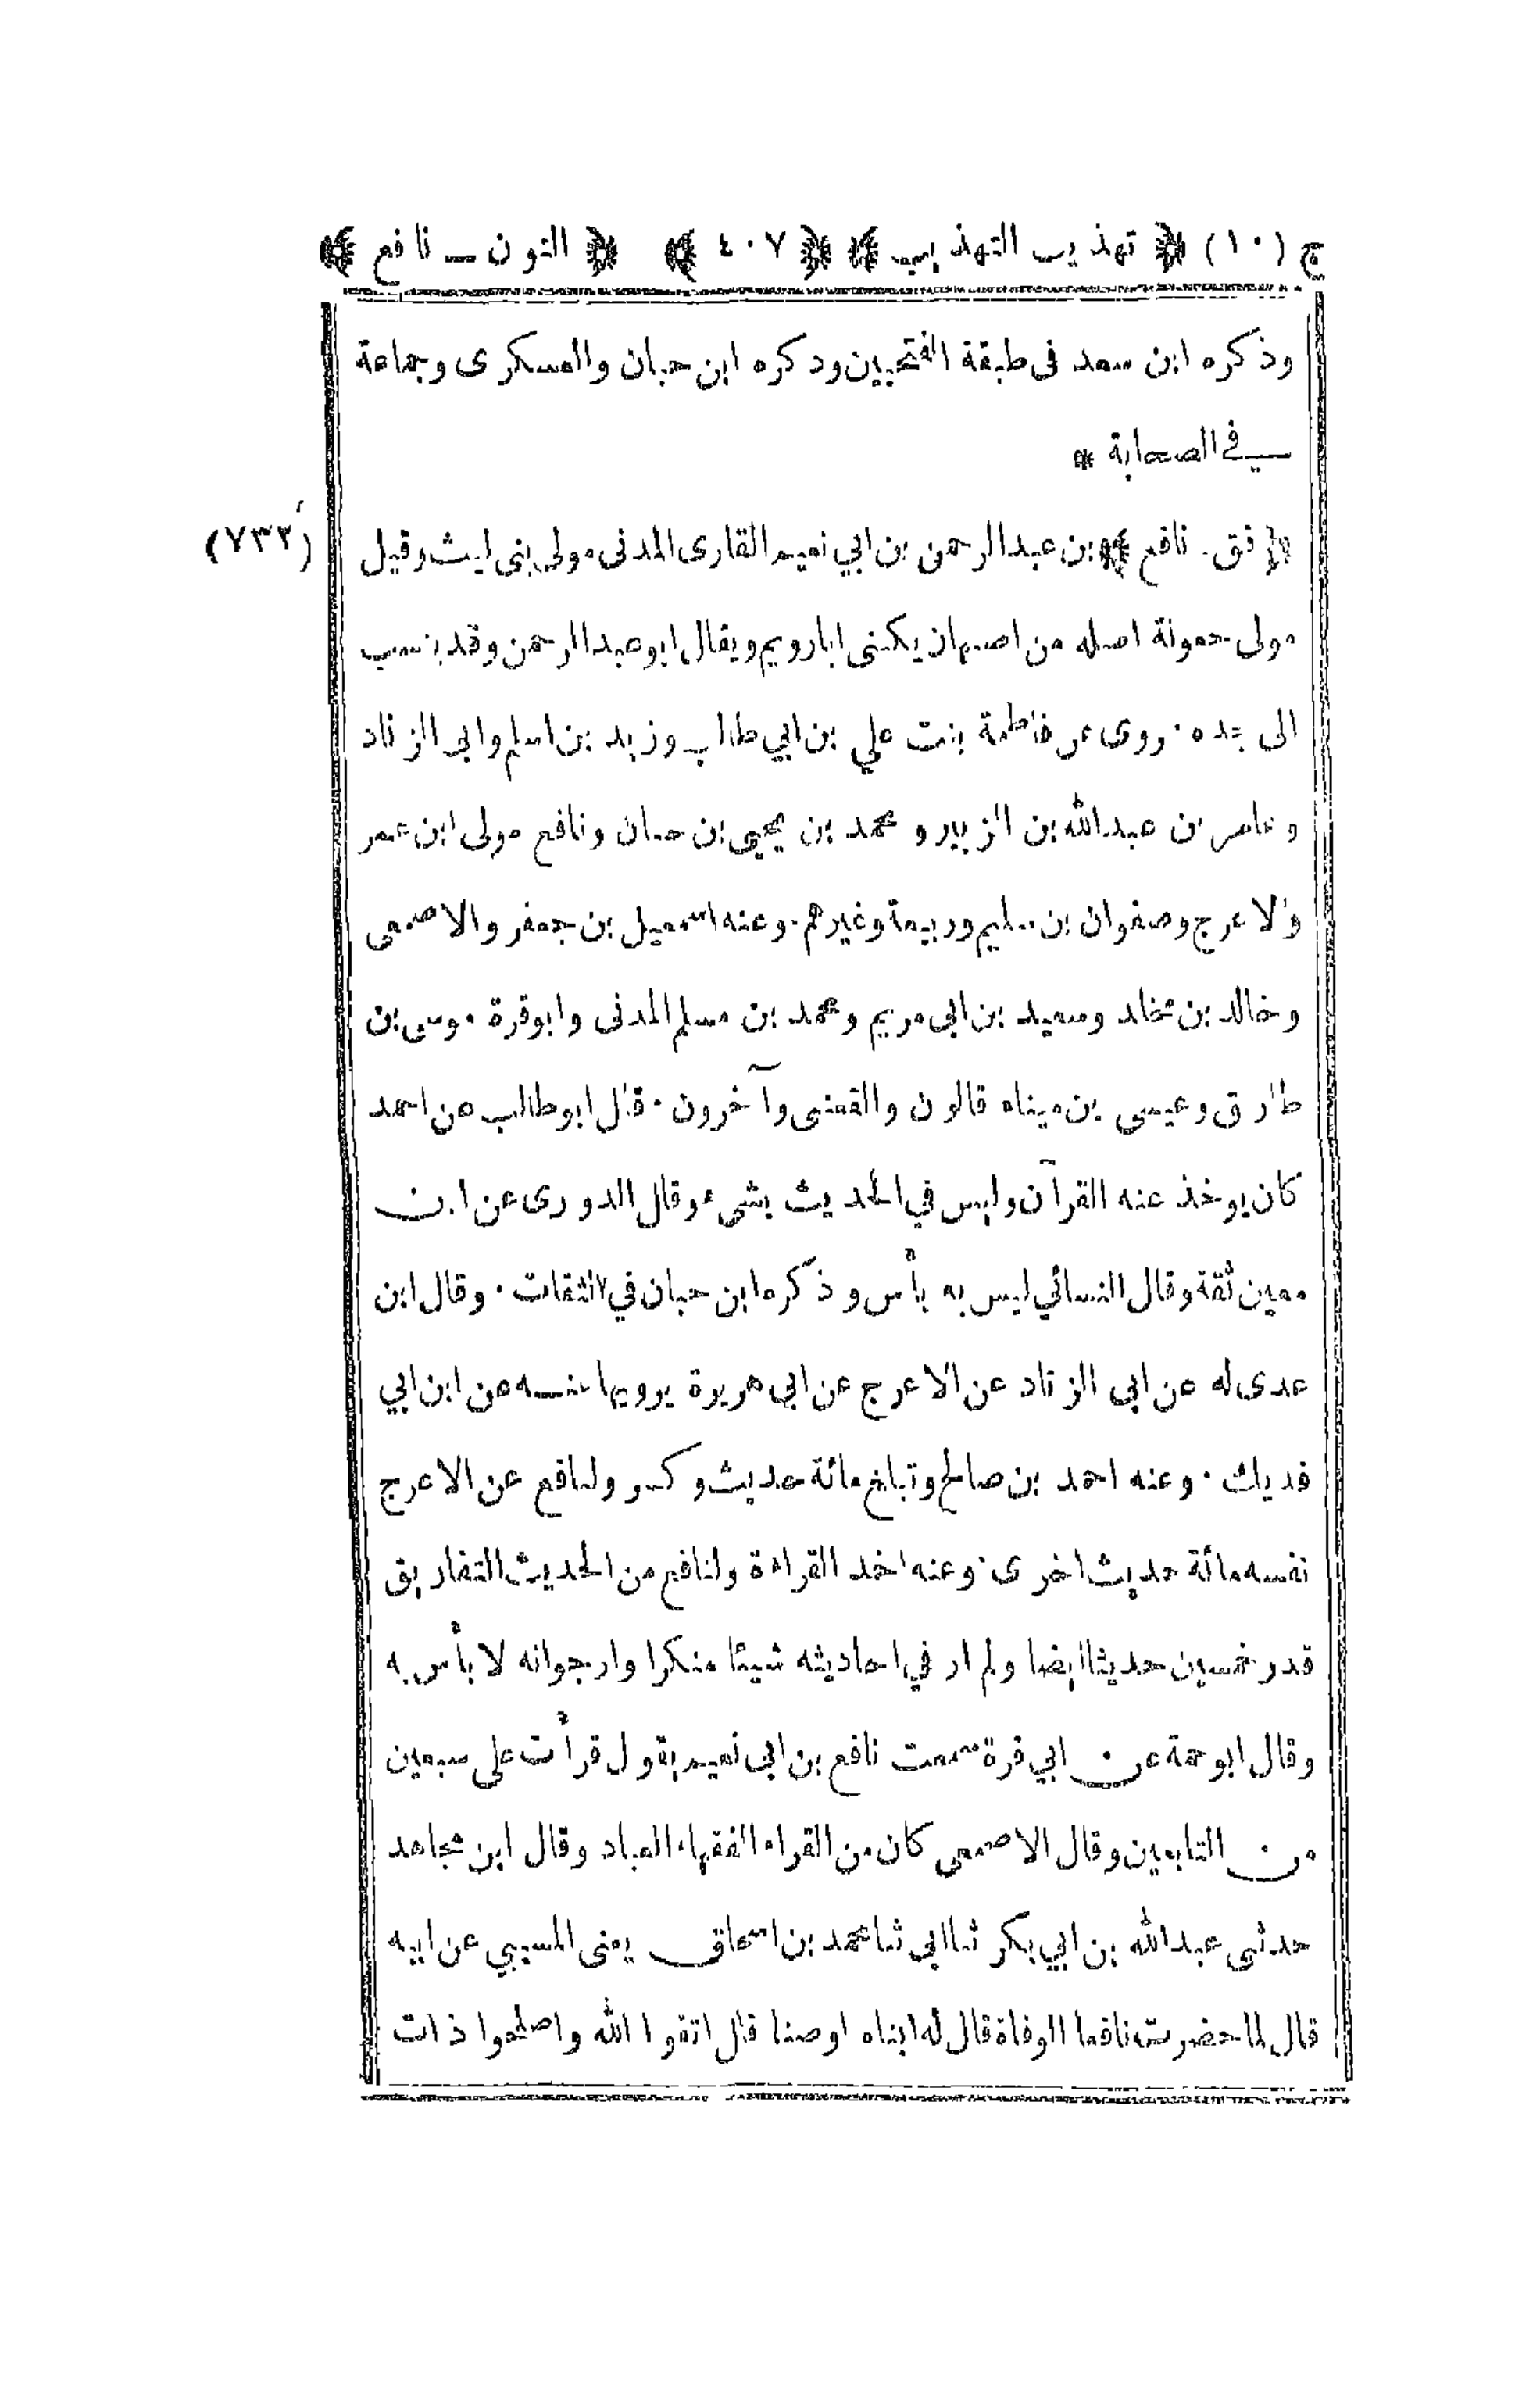 ج (١٠) ﴿ تهذيب التهذيب ﴾ ﴿ ٤٠٧ ﴾ ﴿ النون ــ نافع ﴾
وذكره ابن سعد فى طبقة الفتحيين وذكره ابن حبان والعسكرى وجماعة
في الصحابة *
(٧٣٢)
﴿ فق. نافع ﴾ بن عبدالرحمن بن ابي نعيم القارى المدنى مولى بنى ليث وقيل
مولى جعونة اصله من اصبهان يكنى ابارويم ويقال ابوعبدالرحمن وقد ينسب
الى جده. روى عن فاطمة بنت علي بن ابي طالب وزيد بن اسلم وابى الزناد
وعامر بن عبدالله بن الزبير ومحمد بن يحيى بن حبان ونافع مولى ابن عمر
والاعرج وصفوان بن سليم وربيعة وغيرهم. وعنه اسمعيل بن جعفر والاصمعى
وخالد بن مخلد وسعيد بن ابى مريم ومحمد بن مسلم المدنى وابوقرة موسى بن
طارق وعيسى بن ميناء قالون والقعنبى وآخرون. قال ابوطالب عن احمد
كان يوخذ عنه القرآن وليس في الحديث بشىء وقال الدورى عن ابن
معين ثقة وقال النسائي ليس به بأس وذكره ابن حبان في الثقات. وقال ابن
عدى له عن ابى الزناد عن الاعرج عن ابى هريرة يرويها نسخه عن ابن ابي
فديك. وعنه احمد بن صالح وتبلغ مائة حديث وكسر ولنافع عن الاعرج
نفسه مائة حديث اخرى. وعنه اخذ القراءة ولنافع من الحديث التفاريق
قدر خمسين حديثا ايضا ولم ار في احاديثه شيئا منكرا وارجوانه لا بأس به
وقال ابوحمة عن ابي قرة سمعت نافع بن ابى نعيم يقول قرأت على سبعين
من التابعين وقال الاصمعى كان من القراء الفقهاء العباد وقال ابن مجاهد
حدثنى عبدالله بن ابي بكر ثنا ابى ثنا محمد بن اسحاق يعنى المسيبي عن ابيه
قال لما حضرت نافعا الوفاة قال له ابناه اوصنا قال اتقوا الله واصلحوا ذات